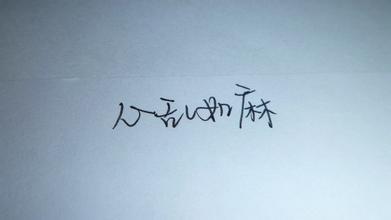 心乱如麻